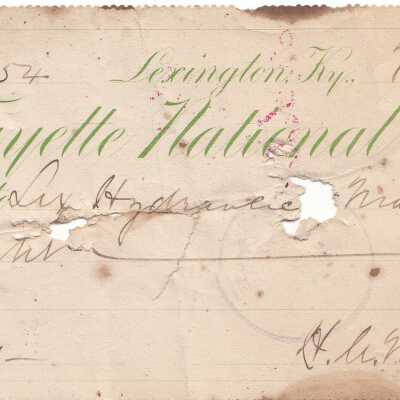 54 Lexington, Ky.,
ayette National
Lex Hydraulic Ma
H. A.